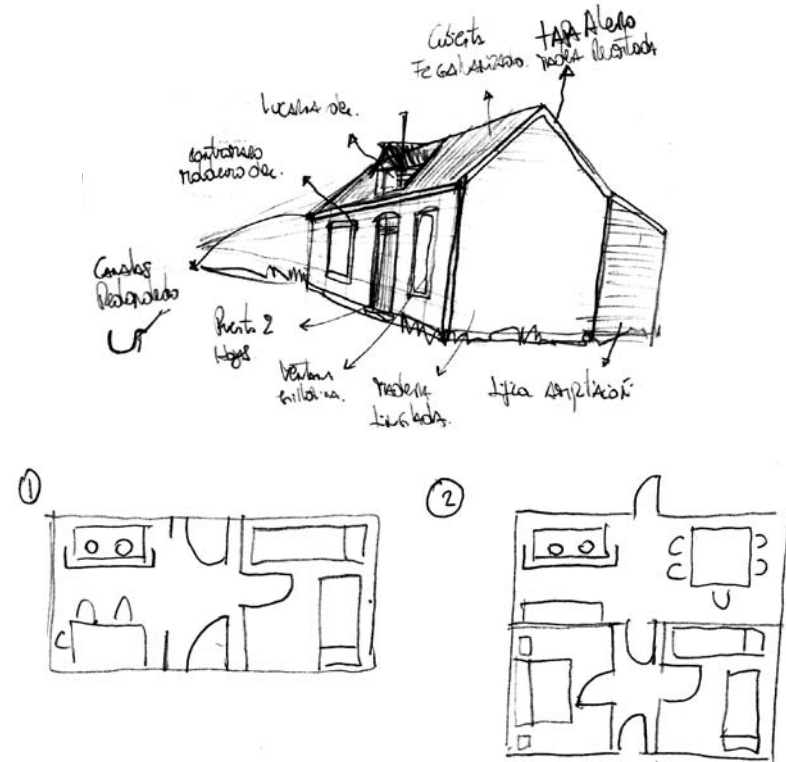 Cubierta
Fe GALVANIZADO.
TAPA Alero
madera Recortada
Lucarna dec.
madero dec.
Canales
Redondeado
Puerta 2
Hojas
Ventana
guillotina.
madera
tinglada.
típica ampliación
1
2